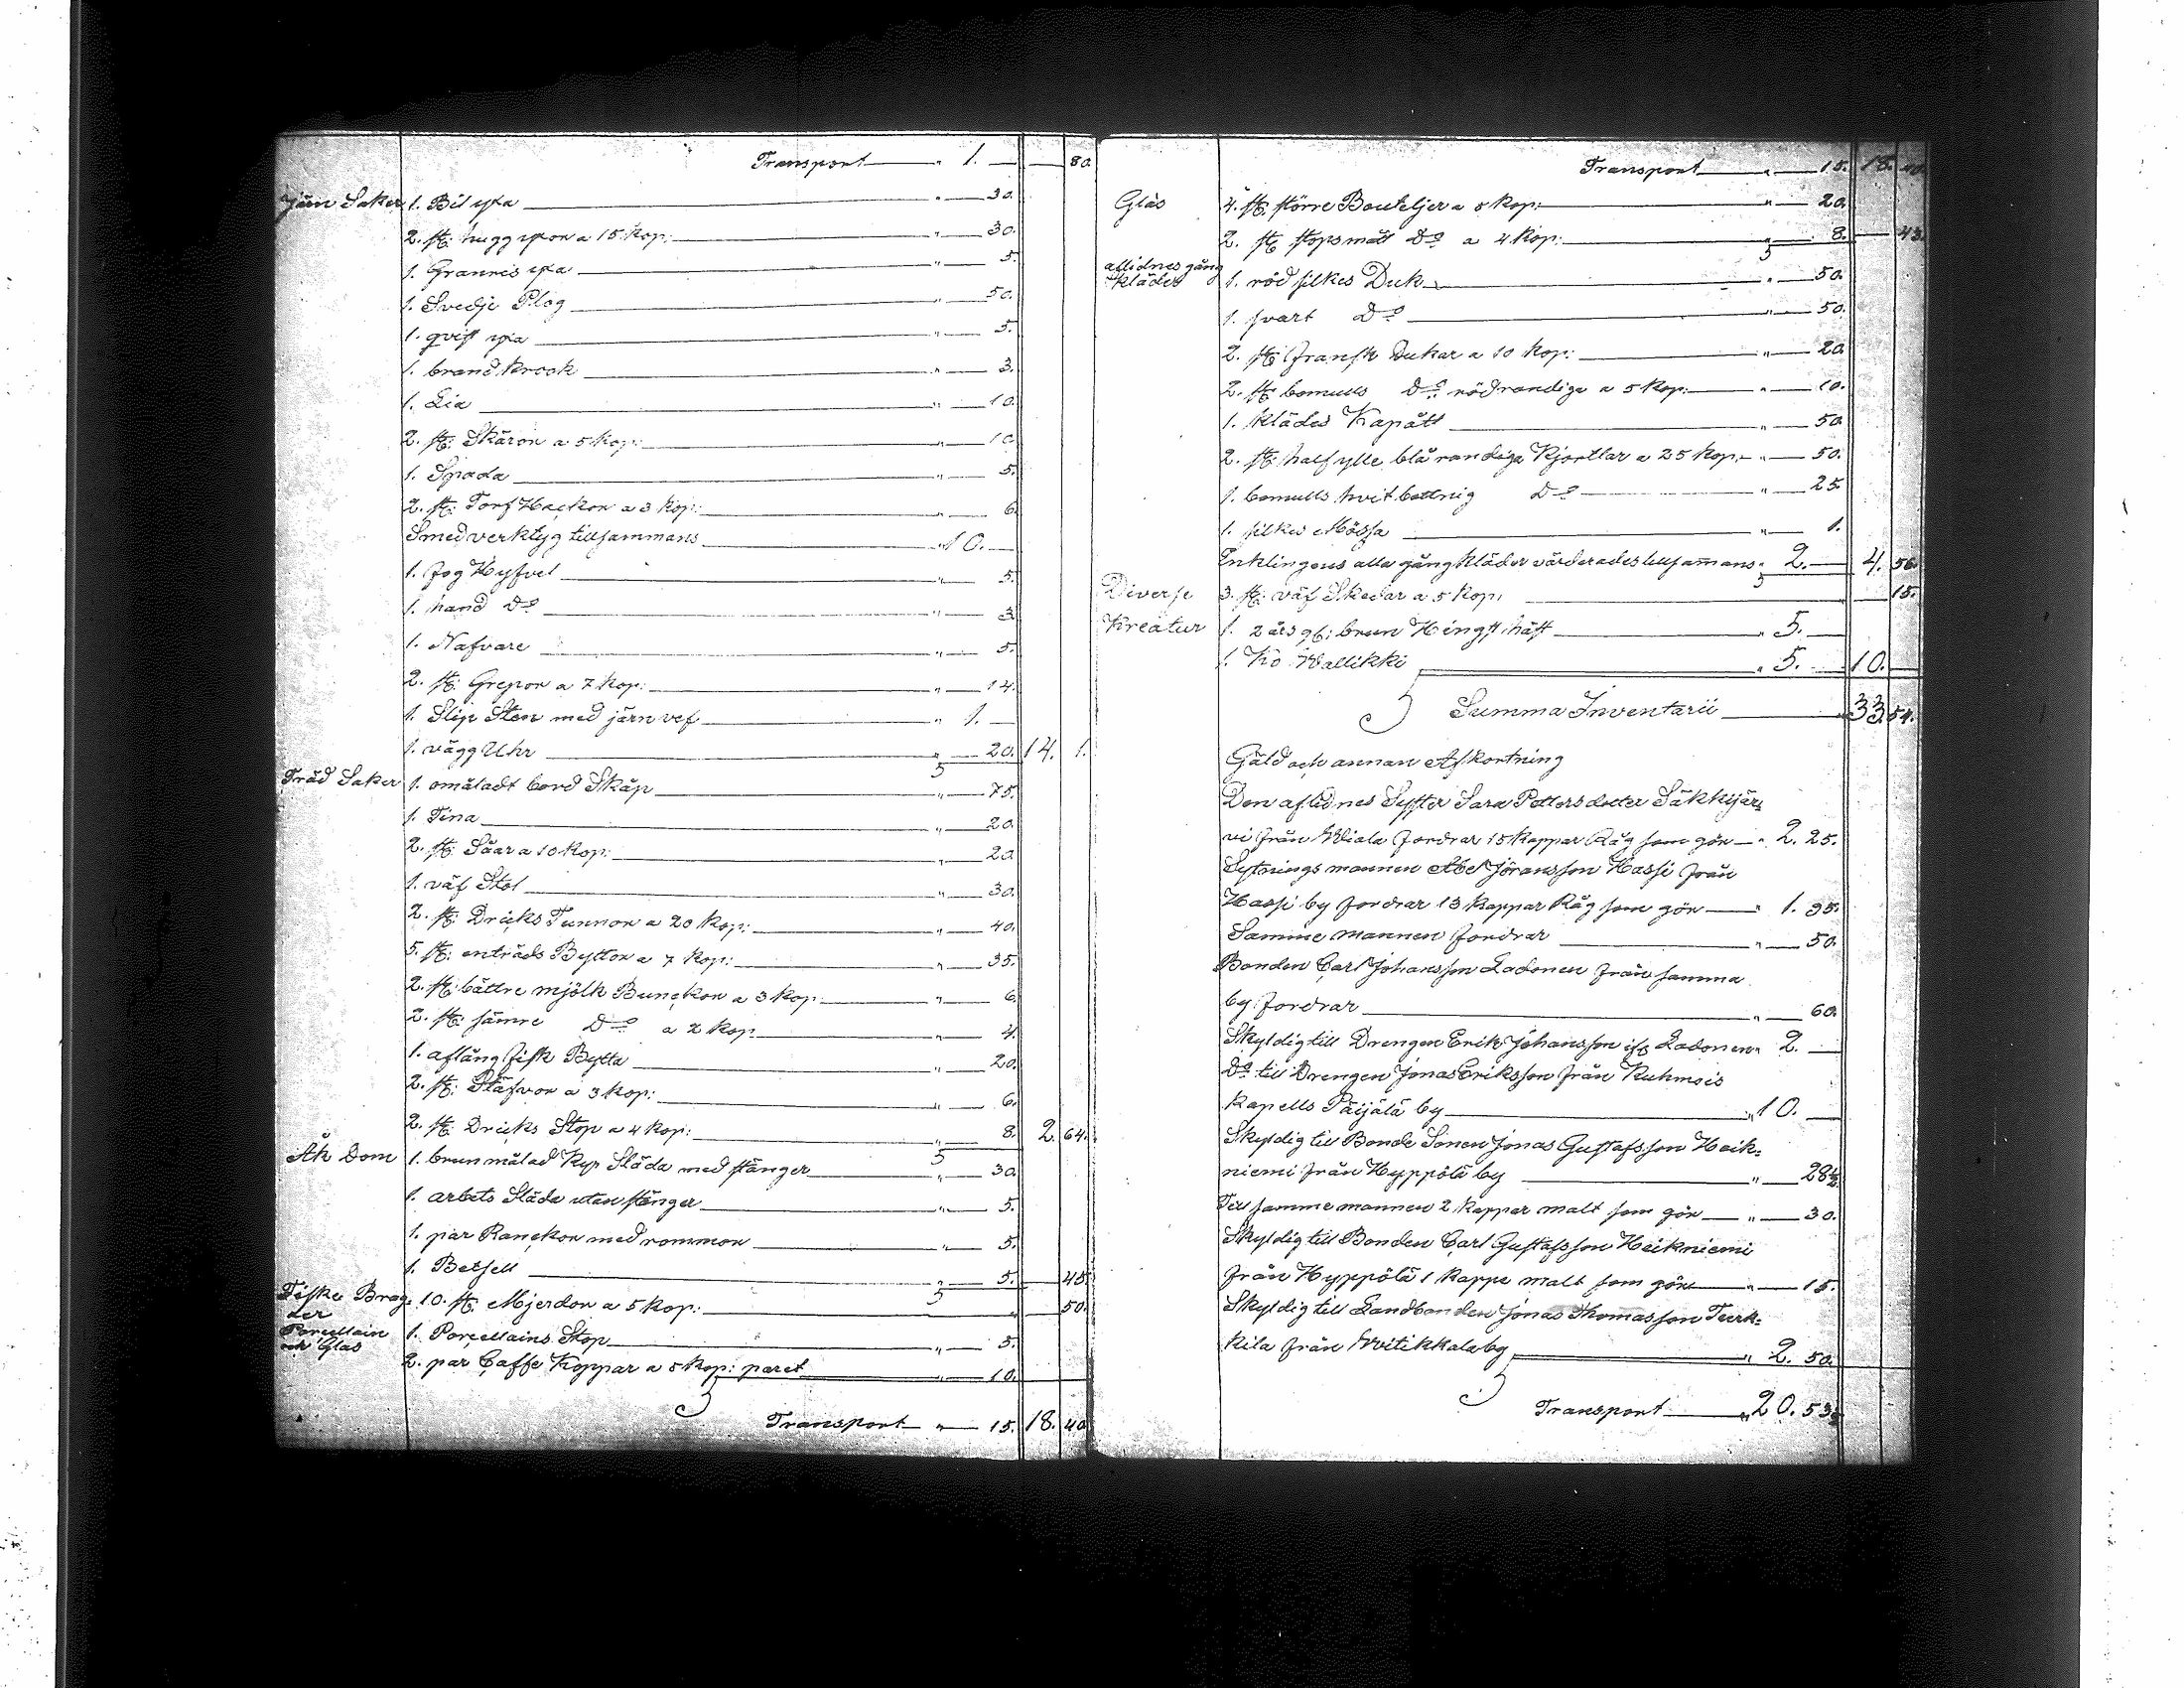 Transport " 1. — 80.
Järn Saker 1. Bil yxa " 30.
2. st: hugg yxor a 15 Kop: " 30.
1. Grannis yxa " 5.
1. Svedje Plog " 50.
1. qvist yxa " 5.
1. brand Krook " 3.
1. Lia " 10.
2. st: Skäror a 5 Kop: " 10.
1. Spada " 5.
2. st: Torf Hackor a 3 Kop: " 6.
Smed verktyg tillsammans " 10. —
1. Fog Hyfvel " 5.
1. hand Do " 3.
1. Nafvare " 5.
2. st: Grepor a 7 Kop: " 14.
1. Slip Sten med järn vef " 1. —
1. vägg Uhr " 20. 14. 1.
Träd Saker 1. omåladt bord Skåp " 75.
1. Tina " 20.
2. st: Såar a 10 Kop: " 20.
1. väf Stol " 30.
2. st: Dricks Tunnor a 20 Kop: " 40.
5. st: enträds Byttor a 7 Kop: " 35.
2. st: bättre mjölk Bunckor a 3 Kop: " 6.
2. st: sämre Do a 2 Kop: " 4.
1. aflång fisk Bytta " 20.
2. st: Stäfvor a 3 Kop: " 6.
2. st: Dricks Stop a 4 Kop: " 8. 2. 64.
Åk Dom 1. brun målad Kyr Släda med stänger " 30.
1. arbets Släda utan stänger " 5.
1. par Ranckor med rommor " 5.
1. Betsell " 5. 45.
Fiske Brag=
der 10. st: Mjerdor a 5 Kop: " 50.
Porcellain
och Glas 1. Porcellains Stop " 5.
2. par Caffe Koppar a 5 Kop: paret " 10.
Transport " 15. 18. 40.
Transport " 15. 18. 40.
Glas 4. st: större Bouteljer a 5 Kop: " 20.
2. st: stopsmått Do a 4 Kop: " 8. 43.
aflidnes gång
kläder 1. röd silkes Duk " 50.
1. svart Do " 50.
2. st: fransk Dukar a 10 Kop: " 20.
2. st: bomulls Do rödrandiga a 5 Kop: " 10.
1. klädes Kapått " 50.
2. st: half ylle blå randiga Kjortlar a 25 Kop: " 50.
1. bomulls hvit bottnig Do " 25.
1. silkes Mössa " 1.
Enklingens alla gång kläder värderades tillsammans " 2. — 4. 56.
Diverse 3. st: väf Skedar a 5 Kop: 15.
Kreatur 1. 2 års gl: brun Hingst häst " 5. —
1. Ko Wallikki " 5. — 10. —
Summa Inventarii 33. 54.
Gäld och annan Afkortning
Den aflidnes Syster Sara Pettersdotter Säkkijär=
vi från Wiala fordrar 15 kappar Råg som gör " 2. 25.
Sytnings mannen Abel Jöransson Hassi från
Hassi by fordrar 13 kappar Råg som gör " 1. 95.
Samme mannen fordrar " 50.
Bonden Carl Johansson Ladonen från samma
by fordrar " 60.
Skyldig till Drengen Erik Johansson ifr Ladonen " 2. —
Do till Drengen Jonas Eriksson från Kuhmois
kapells Päijälä by " 10. —
Skyldig till Bonde Sonen Jonas Gustafsson Heik=
niemi från Hyppölä by " 28½
Till samme mannen 2 kappar malt som gör " 30.
Skyldig till Bonden Carl Gustafsson Heikniemi
från Hyppölä 1 kappe malt som gör " 15.
Skyldig till Landbonden Jonas Thomasson Turk=
kila från Witikkala by " 2. 50.
Transport " 20. 53½